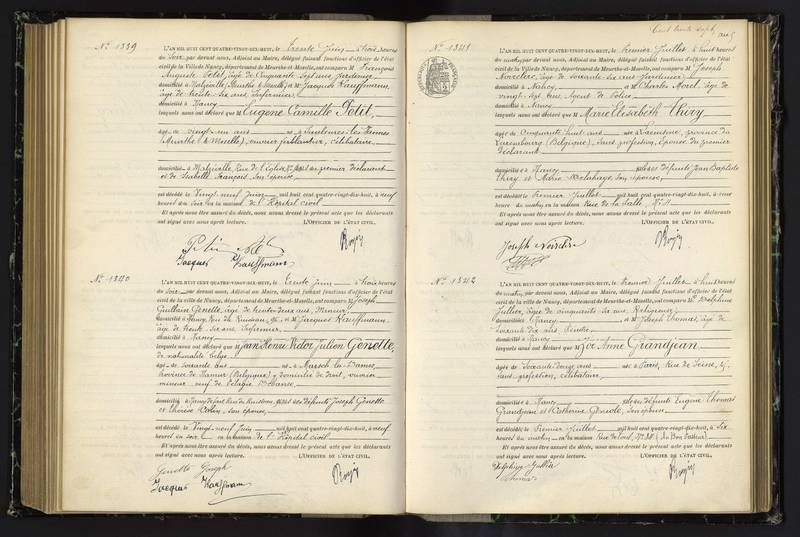 No 1339
L'AN MIL HUIT CENT QUATRE-VINGT-DIX-HUIT, le trente Juin à trois heures
du Soir, par devant nous, Adjoint au Maire, délégué faisant fonctions d'officier de l'état
civil de la Ville de Nancy, département de Meurthe-et-Moselle, ont comparu M. François
Auguste Petit, âgé de Cinquante sept ans, jardinier
domicilié à Malzéville (Meurthe & Moselle) et M. Jacques Kauffmann,
âgé de trente-six ans, Infirmier
domicilié à Nancy
lesquels nous ont déclaré que Eugène Camille Petit,
âgé de vingt un ans né à Saulxures-les-Nancy
(Meurthe & Moselle), ouvrier ferblantier, célibataire
domicilié à Malzéville, Rue de l'Eglise, fils du premier déclarant
et de son épouse,
est décédé le Vingt-neuf Juin mil huit cent quatre-vingt-dix-huit, à neuf
heures du Soir en la maison de l'Hôpital civil
Et après nous être assuré du décès, nous avons dressé le présent acte que les déclarants
ont signé avec nous après lecture. L'OFFICIER DE L'ÉTAT CIVIL,
Petit
Jacques Kauffmann
No 1340
L'AN MIL HUIT CENT QUATRE-VINGT-DIX-HUIT, le trente Juin à trois heures
du Soir, par devant nous, Adjoint au Maire, délégué faisant fonctions d'officier de l'état
civil de la ville de Nancy, département de Meurthe-et-Moselle, ont comparu M. Joseph
Guillain Genette, âgé de trente-deux ans, Mineur
domicilié à Nancy, Rue du Ruisseau, et M. Jacques Kauffmann,
âgé de trente-six ans, Infirmier,
domicilié à Nancy
lesquels nous ont déclaré que Jean Henri Victor Julien Genette,
de nationalité belge
âgé de soixante ans né à Marche-les-Dames,
Province de Namur (Belgique), y domicilié de droit, ouvrier
mineur veuf de
domicilié à Nancy de fait, Rue du Ruisseau, fils des défunts Joseph Genette
et Thérèse Colin, son épouse,
est décédé le Vingt-neuf Juin mil huit cent quatre-vingt-dix-huit, à neuf
heures du soir en la maison de l'Hôpital civil
Et après nous être assuré du décès, nous avons dressé le présent acte que les déclarants
ont signé avec nous après lecture. L'OFFICIER DE L'ÉTAT CIVIL,
Genette Joseph
Jacques Kauffmann
Cent trente sept
No 1341
L'AN MIL HUIT CENT QUATRE-VINGT-DIX-HUIT, le Premier Juillet à huit heures
du matin, par devant nous, Adjoint au Maire, délégué faisant fonctions d'officier de l'état
civil de la Ville de Nancy, département de Meurthe-et-Moselle, ont comparu M. Joseph
âgé de soixante-six ans
domicilié à Nancy et M. Charles Morel, âgé de
vingt-sept ans, Agent de Police
domicilié à Nancy
lesquels nous ont déclaré que Marie Elisabeth Thiry
âgée de Cinquante huit ans née à province de
Luxembourg (Belgique), sans profession, Epouse du premier
déclarant
domiciliée à Nancy fille des défunts Jean Baptiste
Thiry et Marie Delahaye, son épouse,
est décédée le Premier Juillet mil huit cent quatre-vingt-dix-huit, à une
heure du matin en la maison Rue de la Salle, No 11
Et après nous être assuré du décès, nous avons dressé le présent acte que les déclarants
ont signé avec nous après lecture. L'OFFICIER DE L'ÉTAT CIVIL,
Joseph
No 1342
L'AN MIL HUIT CENT QUATRE-VINGT-DIX-HUIT, le Premier Juillet à huit heures
du matin, par devant nous, Adjoint au Maire, délégué faisant fonctions d'officier de l'état
civil de la ville de Nancy, département de Meurthe-et-Moselle, ont comparu Me Delphine
âgée de cinquante-six ans, Religieuse
domiciliée à Nancy et M. Joseph Thomas, âgé de
soixante dix ans, Peintre
domicilié à Nancy
lesquels nous ont déclaré que Zoé Anne Grandjean
âgée de soixante douze ans née à Paris, Rue de Seine,
sans profession, célibataire
domiciliée à Nancy fille des défunts Eugène Thomas
Grandjean et Catherine son épouse
est décédée le Premier Juillet mil huit cent quatre-vingt-dix-huit, à six
heures du matin en la maison Rue de Toul, (au Bon Pasteur)
Et après nous être assuré du décès, nous avons dressé le présent acte que les déclarants
ont signé avec nous après lecture. L'OFFICIER DE L'ÉTAT CIVIL,
Delphine
Thomas